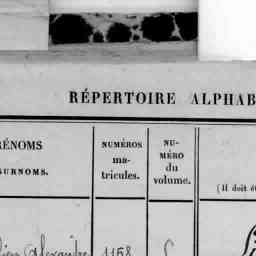 RÉPERTOIRE ALPHAB
RÉNOMS
SURNOMS.
NUMÉROS
ma-
tricules.
NU-
MÉRO
du
volume.
(Il doit êt
Alexandre 1158